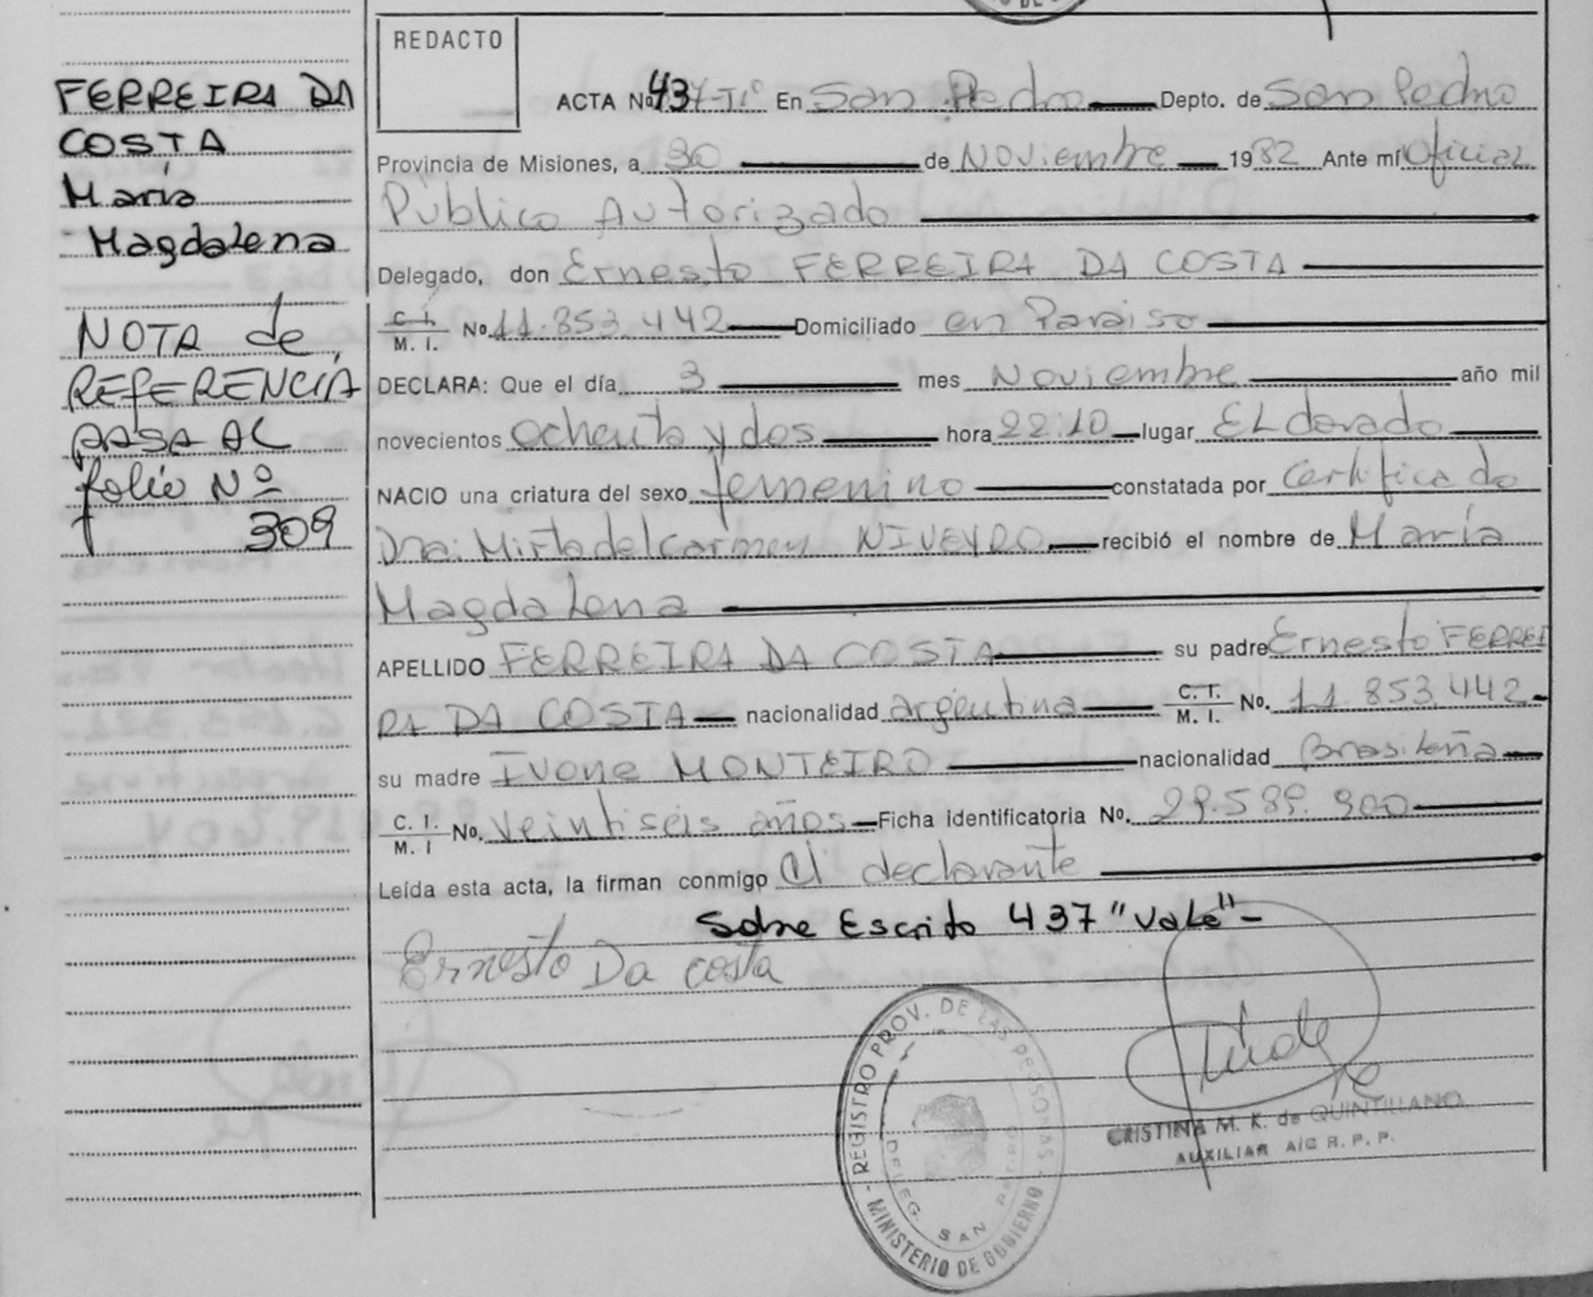 REDACTO
FERREIRA DA
COSTA
María
Magdalena
NOTA de
REFERENCIA
PASA AL
folio Nº
309
ACTA No. 437-Tº En San Pedro Depto. de San Pedro
Provincia de Misiones, a 30 de Noviembre 1982 Ante mí Oficial
Público Autorizado
Delegado, don Ernesto FERREIRA DA COSTA
C. I. / M. I. No. 11.853.442 Domiciliado en Paraiso
DECLARA: Que el día 3 mes Noviembre año mil
novecientos ochenta y dos hora 22:10 lugar ELdorado
NACIO una criatura del sexo femenino constatada por Certificado
Dra: Mirta del Carmen NIVEYRO recibió el nombre de María
Magdalena
APELLIDO FERREIRA DA COSTA su padre Ernesto FERREI
RA DA COSTA nacionalidad argentina C. I. / M. I. No. 11.853.442
su madre Ivone MONTEIRO nacionalidad Brasileña
C. I. / M. I No. veintiseis años Ficha identificatoria No. 29.589.900
Leída esta acta, la firman conmigo el declarante
Sobre Escrito 437 "Vale"-
Ernesto Da costa
REGISTRO PROV. DE LAS PERSONAS
MINISTERIO DE GOBIERNO
DELEG. SAN PEDRO
CRISTINA M. K. de QUINTILLANO
AUXILIAR A/C R. P. P.